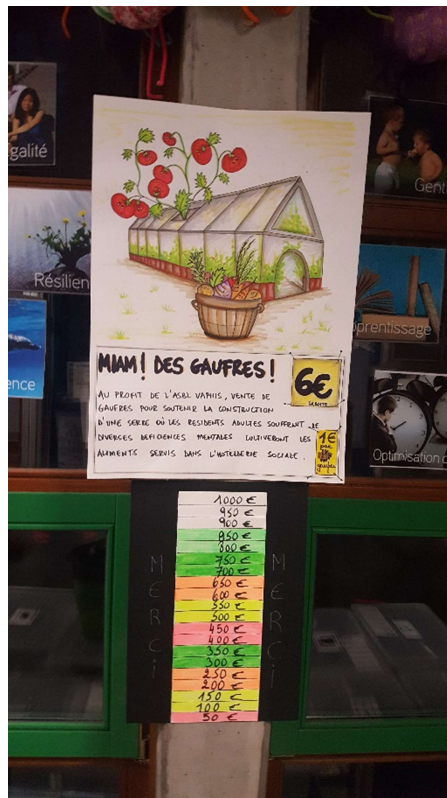 galité
Résilien
ence
Gent
prentissage
Optimisation d
MIAM! DES GAUFRES!
6€
AU PROFIT DE L'ASBL VAPHIS, VENTE DE
GAUFRES POUR SOUTENIR LA CONSTRUCTION
D'UNE SERRE OÙ LES RESIDENTS ADULTES SOUFFRANT DE
DIVERSES DEFICIENCES MENTALES CULTIVERONT LES
ALIMENTS SERVIS DANS L'HOTELLERIE SOCIALE.
1€
par
gaufre
1000 €
950 €
900 €
850 €
800 €
750 €
700 €
650 €
600 €
550 €
500 €
450 €
400 €
350 €
300 €
250 €
200 €
150 €
100 €
50 €
MERCI
MERCI